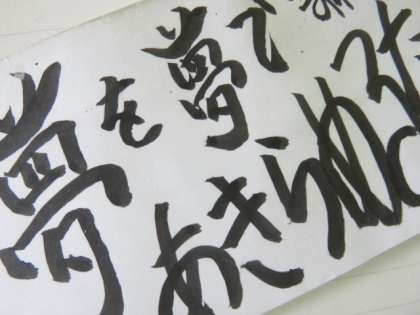 夢を夢で
あきらめ